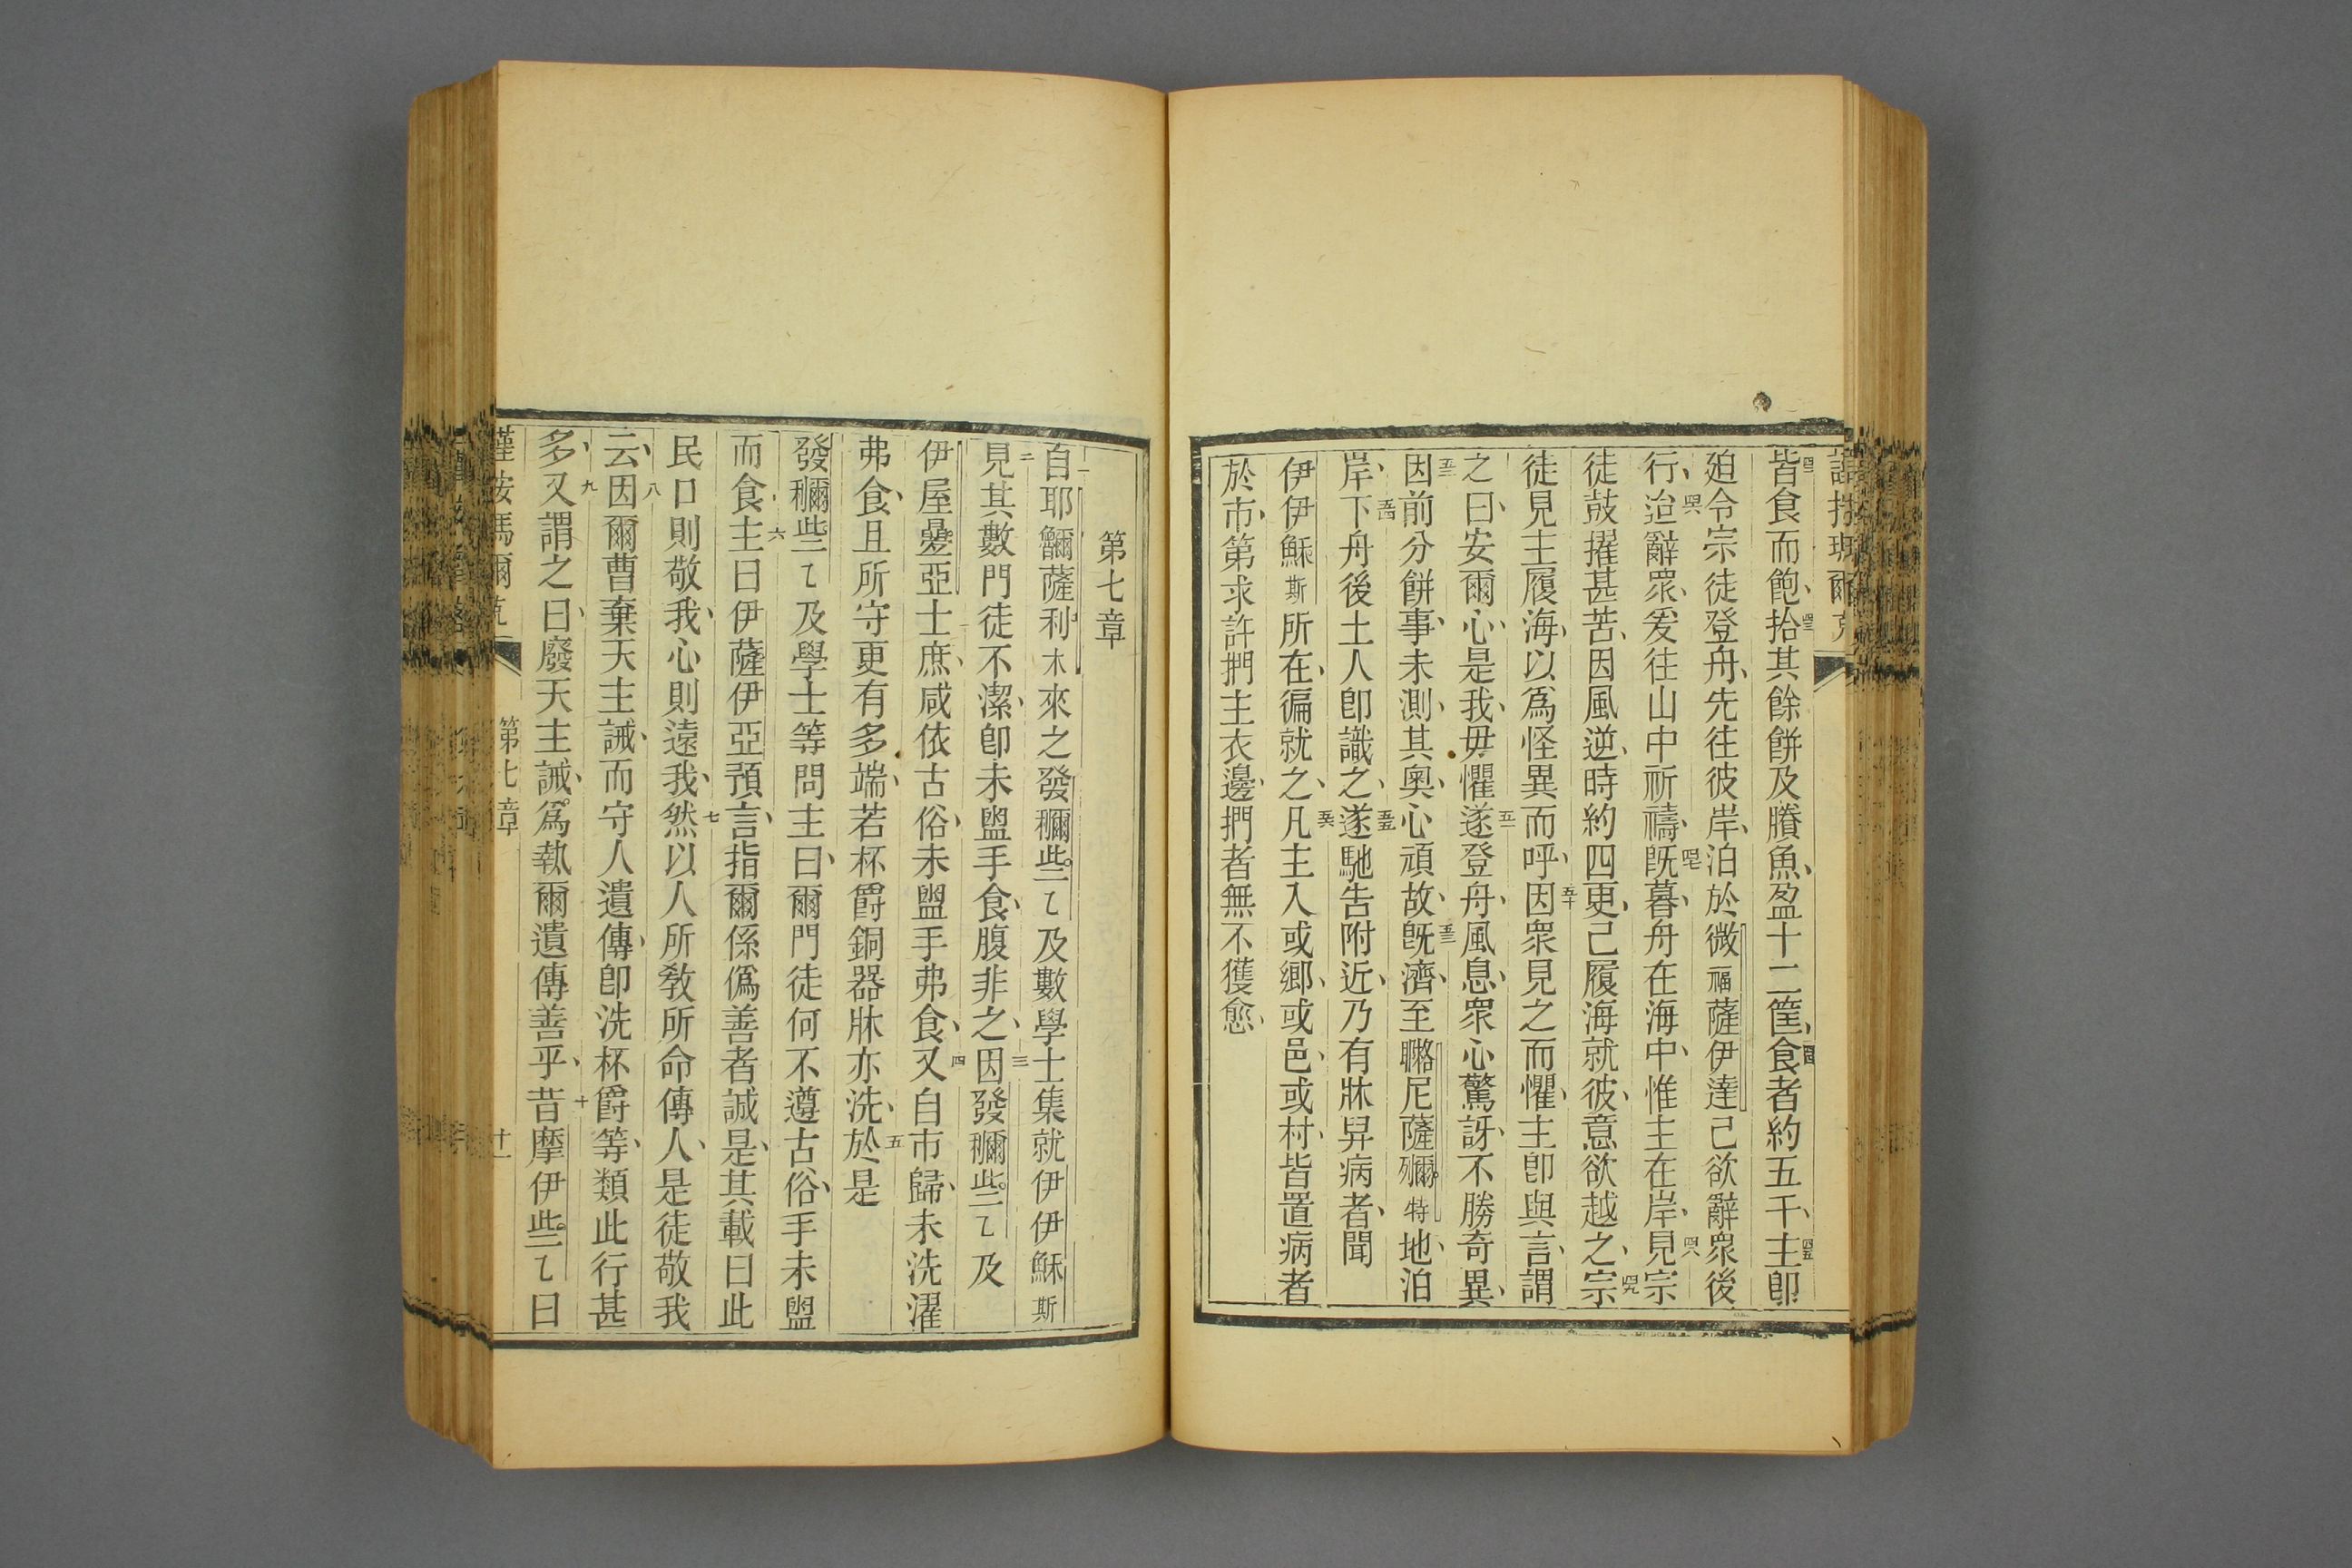 皆食而飽、拾其餘餅及賸魚、盈十二筐、食者約五千、主卽
廹令宗徒登舟、先往彼岸、泊於微福薩伊達己欲辭衆後
行、迨辭衆、爰往山中祈禱、旣暮、舟在海中、惟主在岸、見宗
徒鼓擢甚苦、因風逆、時約四更、己履海就彼、意欲越之、宗
徒見主履海、以爲怪異而呼、因衆見之而懼、主卽與言、謂
之曰、安爾心、是我、毋懼、遂登舟、風息、衆心驚訝、不勝奇異、
因前分餅事、未測其奧、心頑故、旣濟、至尼薩特地、泊
岸、下舟後、土人卽識之、遂馳告附近、乃有牀舁病者、聞
伊伊穌斯所在、徧就之、凡主入或鄉、或邑、或村、皆置病者
於市、第求許捫主衣邊、捫者無不獲愈、
第七章
自耶薩利木來之發些乙及數學士集就伊伊穌斯
見其數門徒不潔、卽未盥手食、腹非之、因發些乙及
伊屋亞士庶、咸依古俗、未盥手弗食、又自市歸、未洗濯
弗食、且所守更有多端、若杯爵銅器牀亦洗、於是
發些乙及學士等問主曰、爾門徒何不遵古俗、手未盥
而食、主曰伊薩伊亞預言、指爾係僞善者誠是、其載曰此
民口則敬我、心則遠我、然以人所敎所命傳人、是徒敬我
云、因爾曹棄天主誡、而守人遺傳、卽洗杯爵等、類此行甚
多、又謂之曰、廢天主誡、爲執爾遺傳善乎、昔摩伊些乙曰
馬爾克
第七章
十一